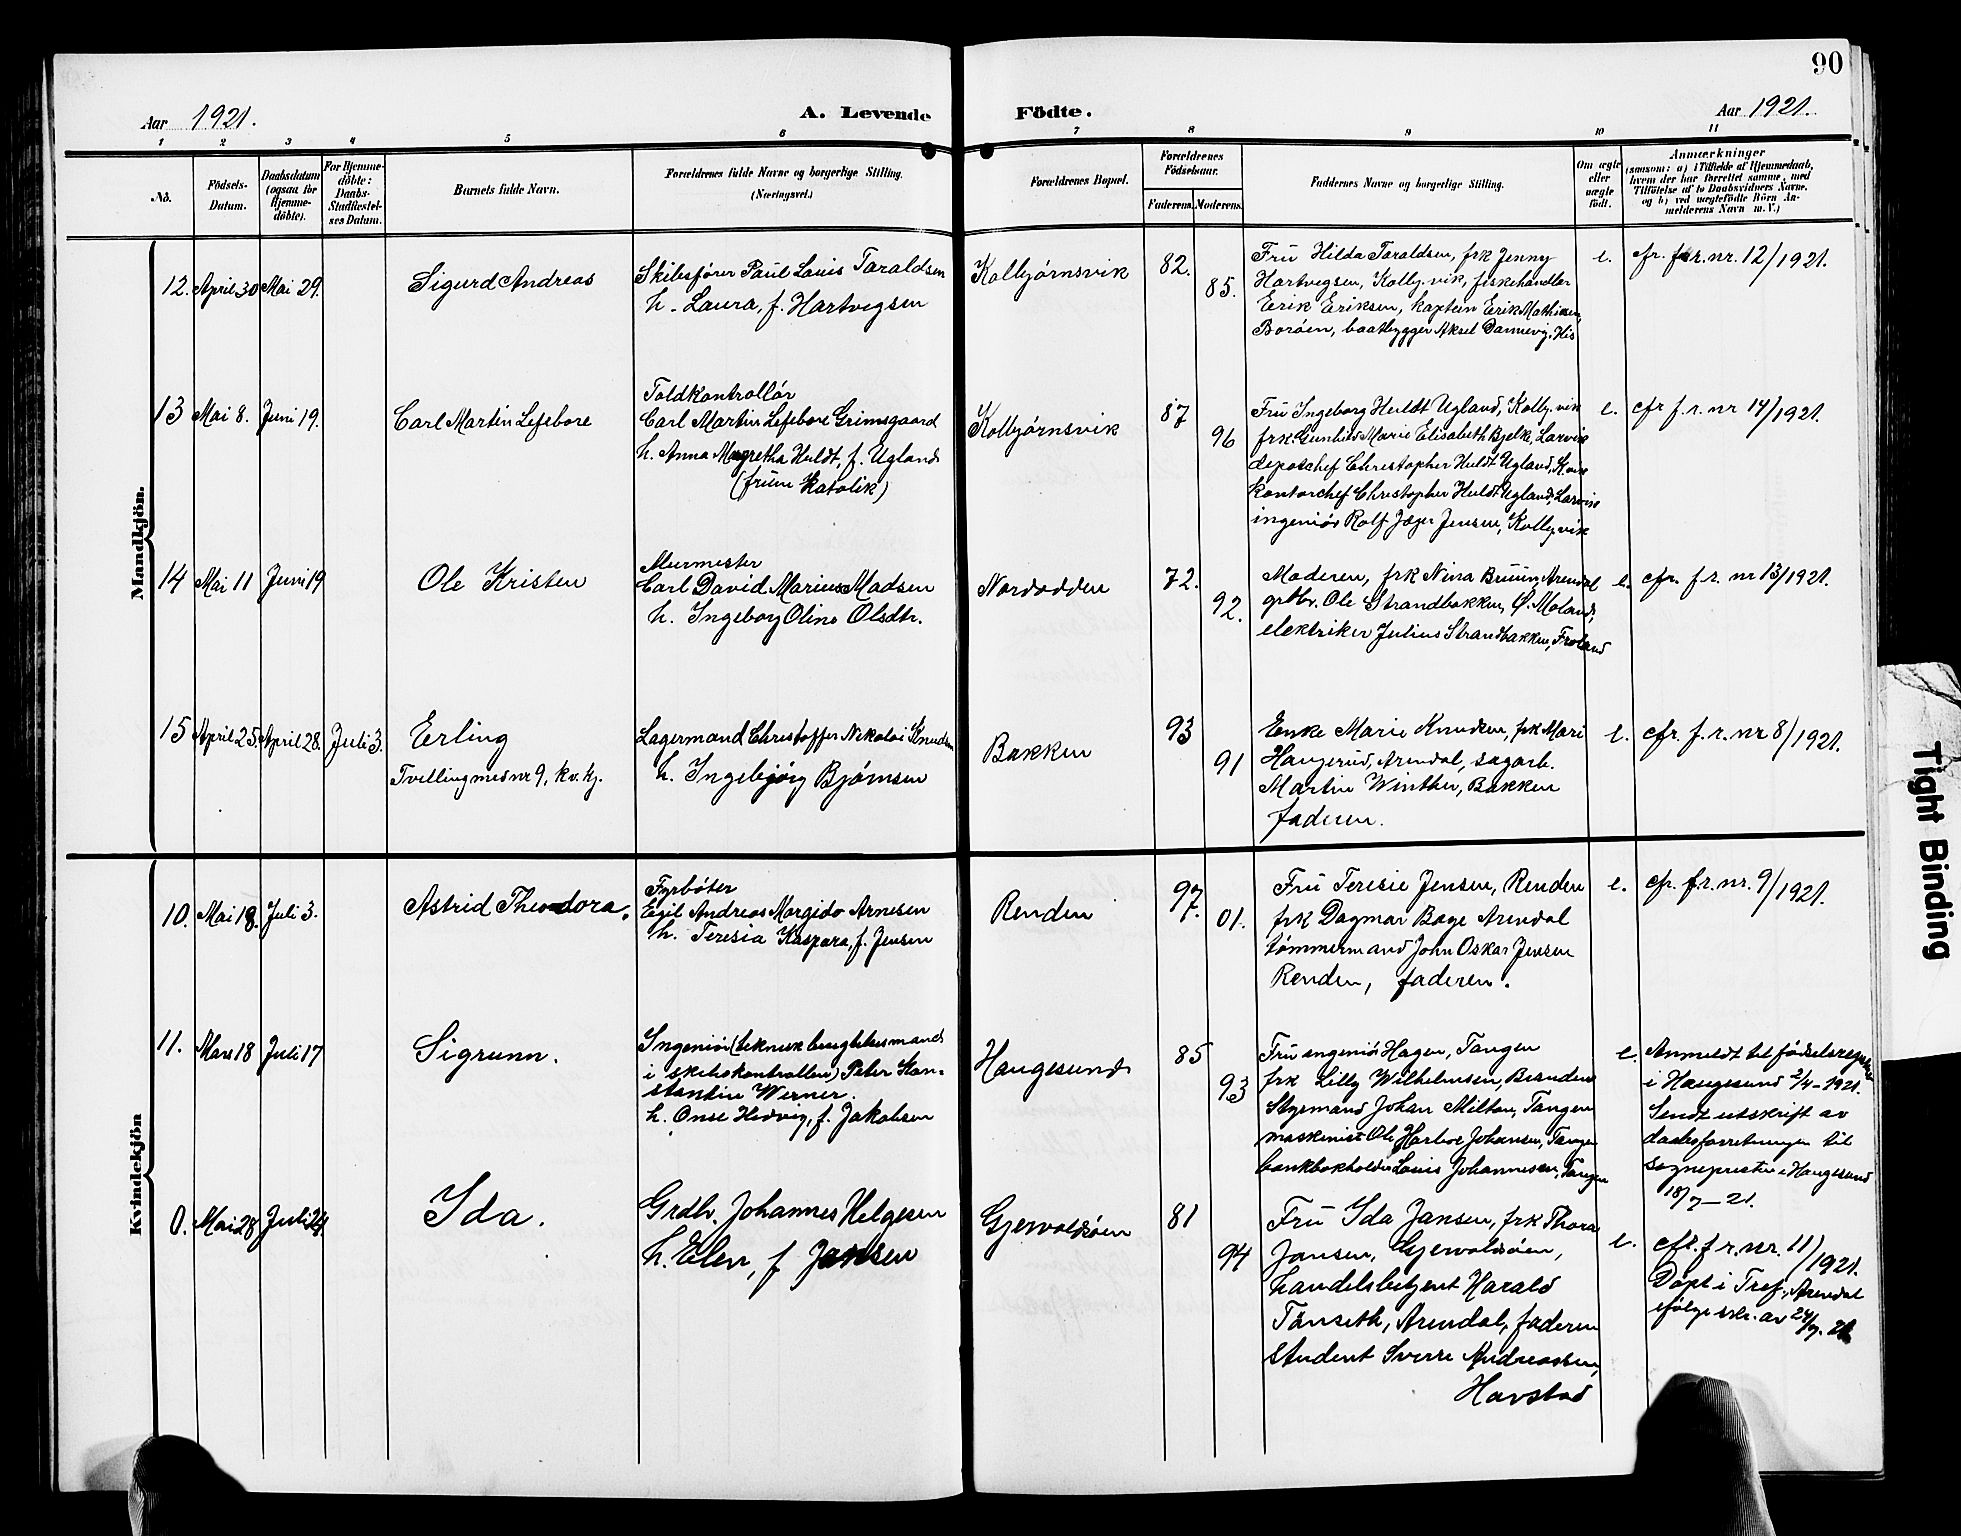 90
Aar 1921. A. Levende Födte. Aar 1921.
1 2 3 4 5 6 7 8 9 10 11
No.
Födsels-
Datum.
Daabsdatum
(ogsaa for
Hjemme-
döbte).
For Hjemme-
döbte:
Daabs-
Stadfæstel-
ses Datum.
Barnets fulde Navn.
Forældrenes fulde Navne og borgerlige Stilling.
(Næringsvei.)
Forældrenes Bopæl.
Forældrenes
Födselsaar.
Faderens. Moderens.
Faddernes Navne og borgerlige Stilling.
Om ægte
eller
uægte
født.
Anmærkninger
(saasom: a) i Tilfælde af Hjemmedaab,
hvem der har forrettet samme, med
Tilföielse af to Daabsvidners Navne.
og b) ved uægtefödte Börn An-
melderens Navn m. V.)
Mandkjön.
12. April 30 Mai 29.
Sigurd Andreas
Skibsfører Paul Louis Taraldsen
h. Laura, f. Hartvigsen
Kolbjørnsvik
82.
85.
Fru Hilda Taraldsen, frk Jenny
Hartvegsen, Kolbj.vik, fiskehandler
Erik Eriksen, kaptein Erik Mathisen,
Borøen, baatbygger Aksel Dannevig, His
e.
cfr. f.r. nr. 12/1921.
13 Mai 8. Juni 19.
Carl Martin Lefebore
Toldkontrollør
Carl Martin Lefebore Grimsgaard
h. Anna Magretha Huldt, f. Ugland
(frue katolik)
Kolbjørnsvik
87
96
Fru Ingeborg Huldt Ugland, Kolbj.vik
frk Gunhild Marie Elisabeth Bjelk, Larvik
depotchef Christopher Huldt Ugland,
kontorchef Christopher Huldt Ugland, Larvik
ingeniør Rolf Jæger Jensen, Kolbj.vik
e.
cfr f.r. nr 14/1921.
14 Mai 11 Juni 19
Ole Kristen
Murmester
Carl David Marius Madsen
h. Ingeborg Oline Olsdtr.
Nordodden
72.
92.
Moderen, frk Nina Bruun, Arendal
grbr. Ole Strandbakken, Ø. Moland,
elektriker Julius Strandbakken, Froland
e.
cfr. f.r. nr 13/1921.
15 April 25. April 28. Juli 3.
Erling
Tvelling med nr 9, kv. kj.
Lagermand Christoffer Nikolai Knudsen
h. Ingebjørg Bjørnsen
Bakken
93
91
Enke Marie Knudsen, frk Mari
Haugerud, Arendal, sagarb.
Martin Winther, Bakken
faderen.
e.
cfr. f.r. nr 8/1921.
Kvindekjön
10. Mai 18. Juli 3.
Astrid Theodora.
Fyrbøter
Egil Andreas Margido Arnesen
h. Teresia Kaspara, f. Jensen
Renden
97.
01.
Fru Teresie Jensen, Renden
frk Dagmar Bage Arendal
tømmermand John Oskar Jensen
Renden, faderen.
e.
cfr. f.r. nr. 9/1921.
11. Mars 18 Juli 17
Sigrunn.
Ingeniør (teknisk
i skibskontrollen) Peter Kon-
stantin Werner.
h. Onse Hedvig, f. Jakobsen
Haugesund
85
93
Fru ingeniør Hagen, Tangen
frk Lilly Wilhelmsen, Brenden
Styrmand Johan Milton, Tangen
maskinist Ole Harboe Johansen, Tangen
bankbokholder Louis Johannesen, Tangen
e.
Anmeldt til fødselsregister
i Haugesund 2/4-1921.
Sendt utskrift av
daabsforretningen til
sognepresten i Haugesund
18/7-21.
0. Mai 28 Juli 24.
Ida.
Grdbr. Johannes Helgesen
h. Elen, f Jansen
Gjervoldsøen
81
94
Fru Ida Jansen, frk Thora
Jansen, Gjervoldsøien,
handelsbetjent Harald
Tånseth, Arendal, faderen
student Sverre Andreassen,
Havstad
e.
cfr. f r. nr. 11/1921.
Døpt i Tref., Arendal
ifølge skr. av 24/7. 21
Tight Binding